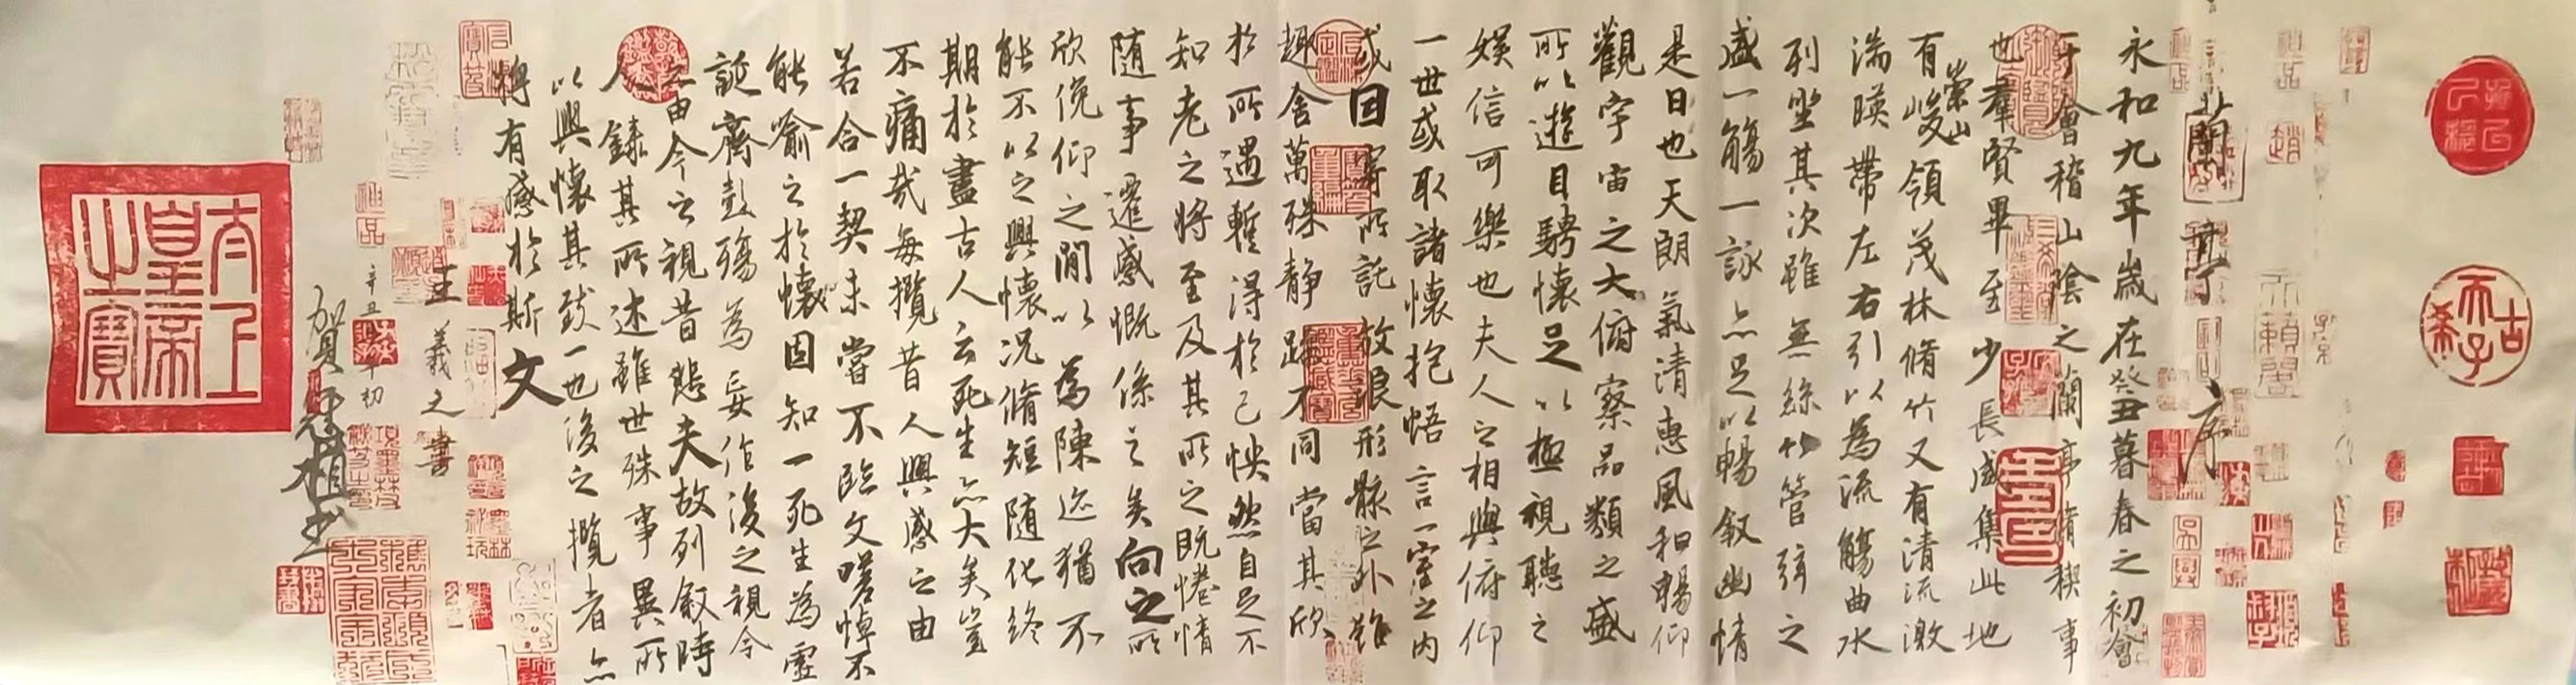 古希天子
蘭亭序
永和九年歲在癸丑暮春之初會
于會稽山陰之蘭亭脩稧事
也羣賢畢至少長咸集此地
有崇山峻領茂林脩竹又有清流激
湍暎帶左右引以為流觴曲水
列坐其次雖無絲竹管弦之
盛一觴一詠亦足以暢敘幽情
是日也天朗氣清惠風和暢仰
觀宇宙之大俯察品類之盛
所以遊目騁懷足以極視聽之
娛信可樂也夫人之相與俯仰
一世或取諸懷抱悟言一室之內
或因寄所託放浪形骸之外雖
趣舍萬殊靜躁不同當其欣
於所遇暫得於己怏然自足不
知老之將至及其所之既惓情
隨事遷感慨係之矣向之所
欣俛仰之閒以為陳迹猶不
能不以之興懷況脩短隨化終
期於盡古人云死生亦大矣豈
不痛哉每攬昔人興感之由
若合一契未嘗不臨文嗟悼不
能喻之於懷固知一死生為虛
誕齊彭殤為妄作後之視今
亦由今之視昔悲夫故列敘時
人錄其所述雖世殊事異所
以興懷其致一也後之攬者亦
將有感於斯文
王羲之書
辛丑年初
賀
太上皇帝之寶